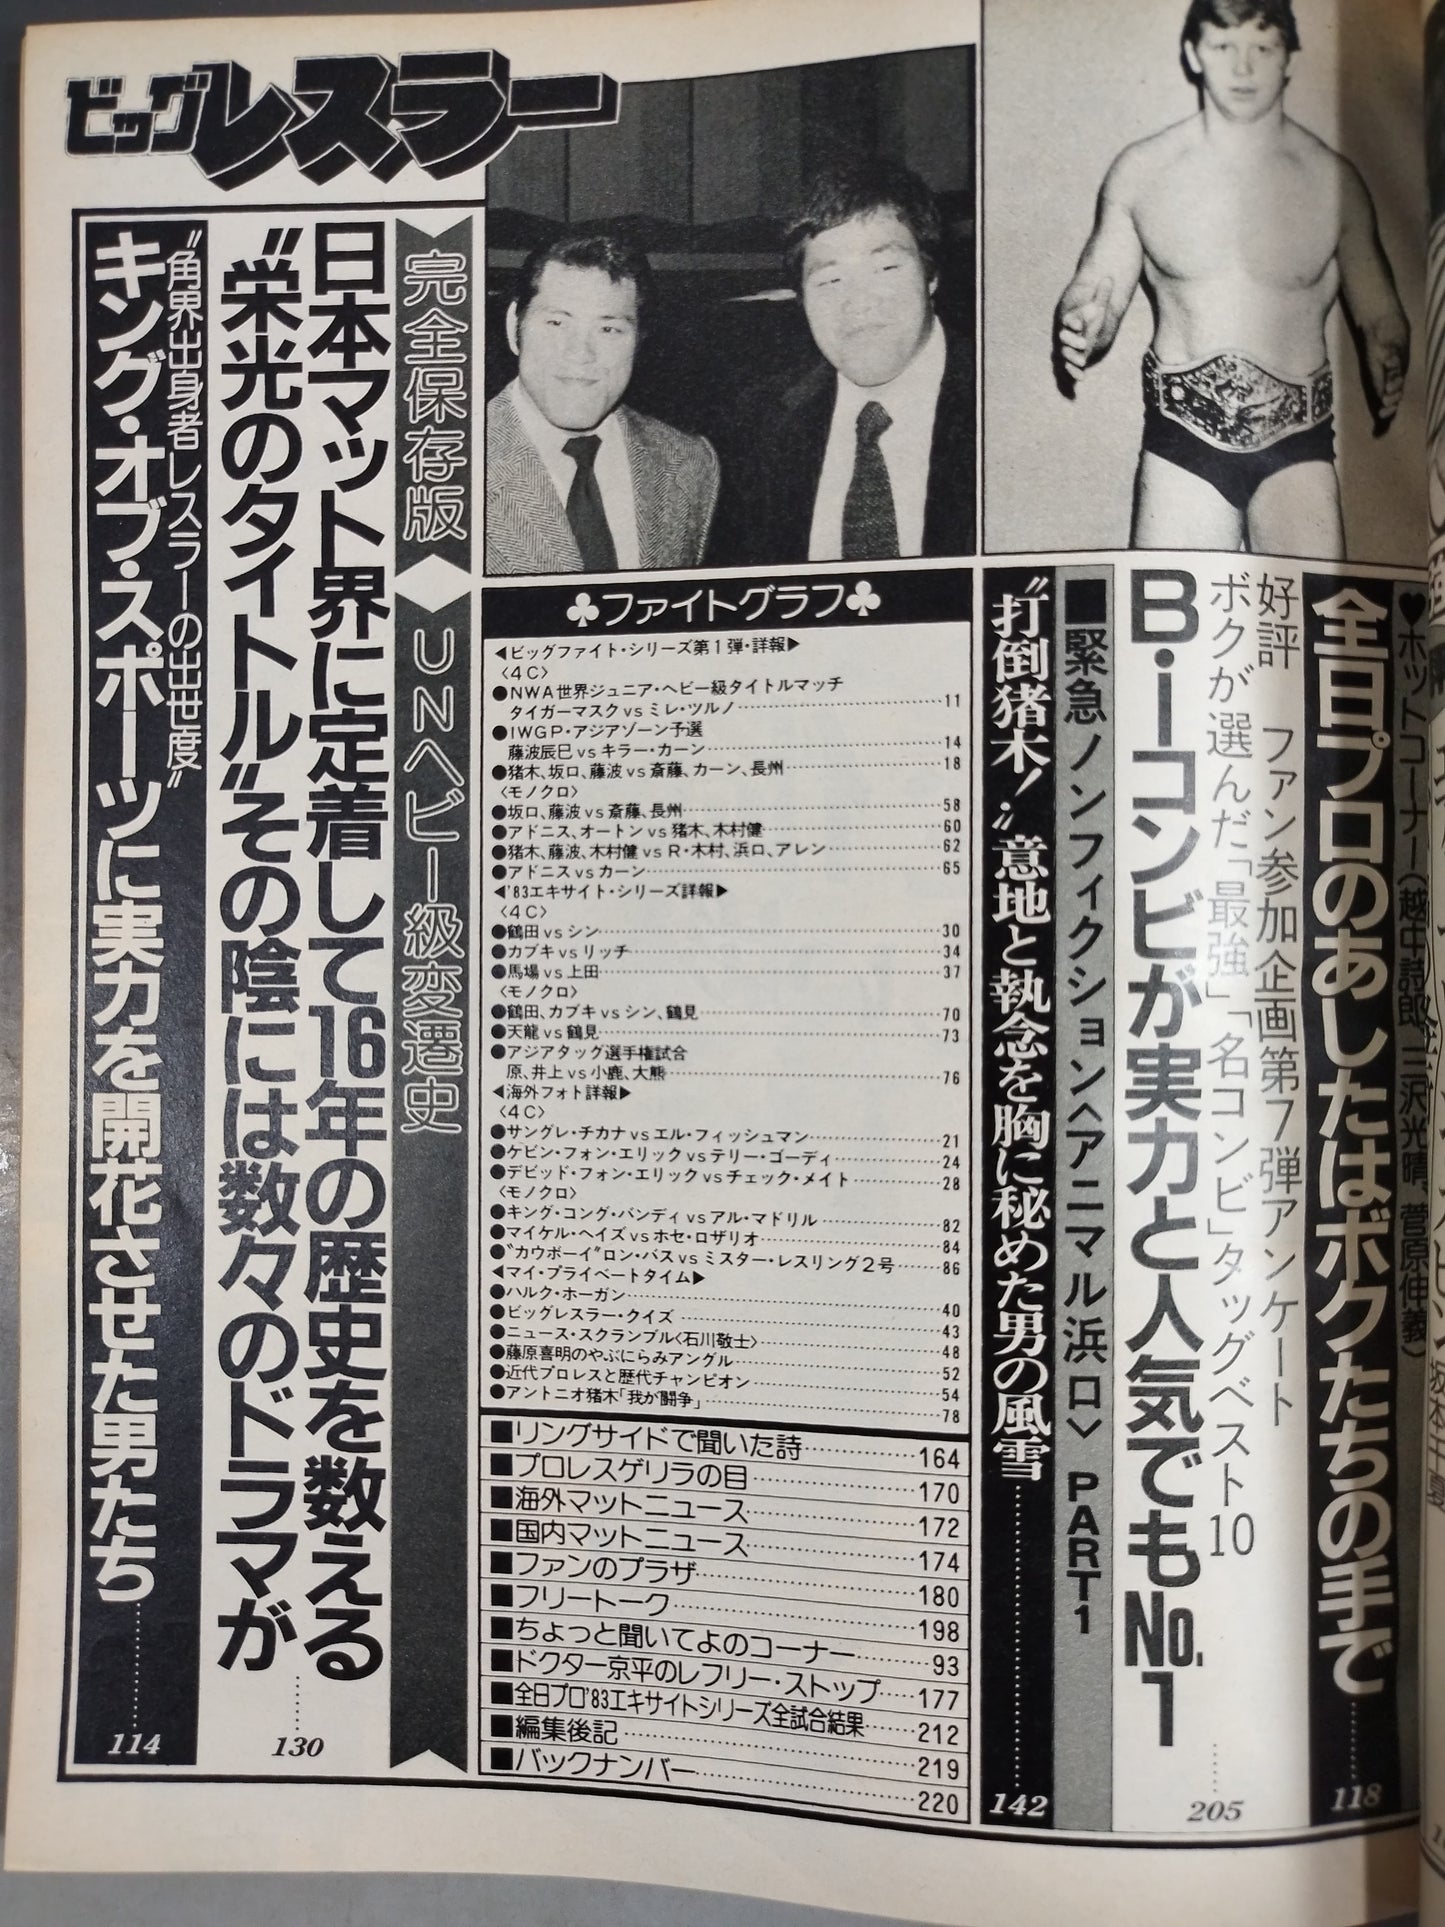 ビッグレスラー
♥ホットコーナー(越中詩郎、三沢光晴、菅原伸義)
全日プロのあしたはボクたちの手で……118
好評 ファン参加企画第7弾アンケート
ボクが選んだ「最強」「名コンビ」タッグベスト10
B・Iコンビが実力と人気でもNo.1……205
■緊急ノンフィクション〈アニマル浜口〉 PART1
〝打倒猪木!〟意地と執念を胸に秘めた男の風雪……142
♣ファイトグラフ♣
◀ビッグファイト・シリーズ第1弾・詳報▶
〈4C〉
●NWA世界ジュニア・ヘビー級タイトルマッチ
タイガーマスクvsミレ・ツルノ……11
●IWGP・アジアゾーン予選
藤波辰巳vsキラー・カーン……14
●猪木、坂口、藤波vs斎藤、カーン、長州……18
〈モノクロ〉
●坂口、藤波vs斎藤、長州……58
●アドニス、オートンvs猪木、木村健……60
●猪木、藤波、木村健vsR・木村、浜口、アレン……62
●アドニスvsカーン……65
◀'83エキサイト・シリーズ詳報▶
〈4C〉
●鶴田vsシン……30
●カブキvsリッチ……34
●馬場vs上田……37
〈モノクロ〉
●鶴田、カブキvsシン、鶴見……70
●天龍vs鶴見……73
●アジアタッグ選手権試合
原、井上vs小鹿、大熊……76
◀海外フォト詳報▶
〈4C〉
●サングレ・チカナvsエル・フィッシュマン……21
●ケビン・フォン・エリックvsテリー・ゴーディ……24
●デビッド・フォン・エリックvsチェック・メイト……28
〈モノクロ〉
●キング・コング・バンディvsアル・マドリル……82
●マイケル・ヘイズvsホセ・ロザリオ……84
●〝カウボーイ〟ロン・バスvsミスター・レスリング2号……86
◀マイ・プライベートタイム▶
●ハルク・ホーガン……40
●ビッグレスラー・クイズ……43
●ニュース・スクランブル〈石川敬士〉……48
●藤原喜明のやぶにらみアングル……52
●近代プロレスと歴代チャンピオン……54
●アントニオ猪木「我が闘争」……78
■リングサイドで聞いた詩……164
■プロレスゲリラの目……170
■海外マットニュース……172
■国内マットニュース……174
■ファンのプラザ……180
■フリートーク……198
■ちょっと聞いてよのコーナー……93
■ドクター京平のレフリー・ストップ……177
■全日プロ'83エキサイトシリーズ全試合結果……212
■編集後記……219
■バックナンバー……220
完全保存版 UNヘビー級変遷史
日本マット界に定着して16年の歴史を数える
〝栄光のタイトル〟その陰には数々のドラマが……130
〝角界出身者レスラーの出世度〟
キング・オブ・スポーツに実力を開花させた男たち……114